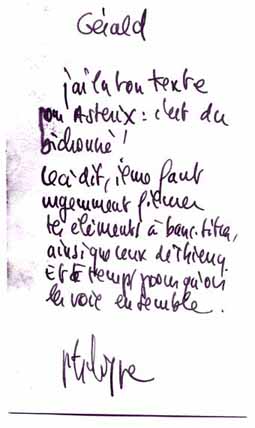 Gérald
j'ai lu ton texte
pour Asterix : c'est du
bichonné !
Ceci dit, il me faut
urgemment filmer
tes éléments à banc-titre,
ainsi que ceux de Thierry.
Et temps pour qu'on
les voie ensemble.
Philippe